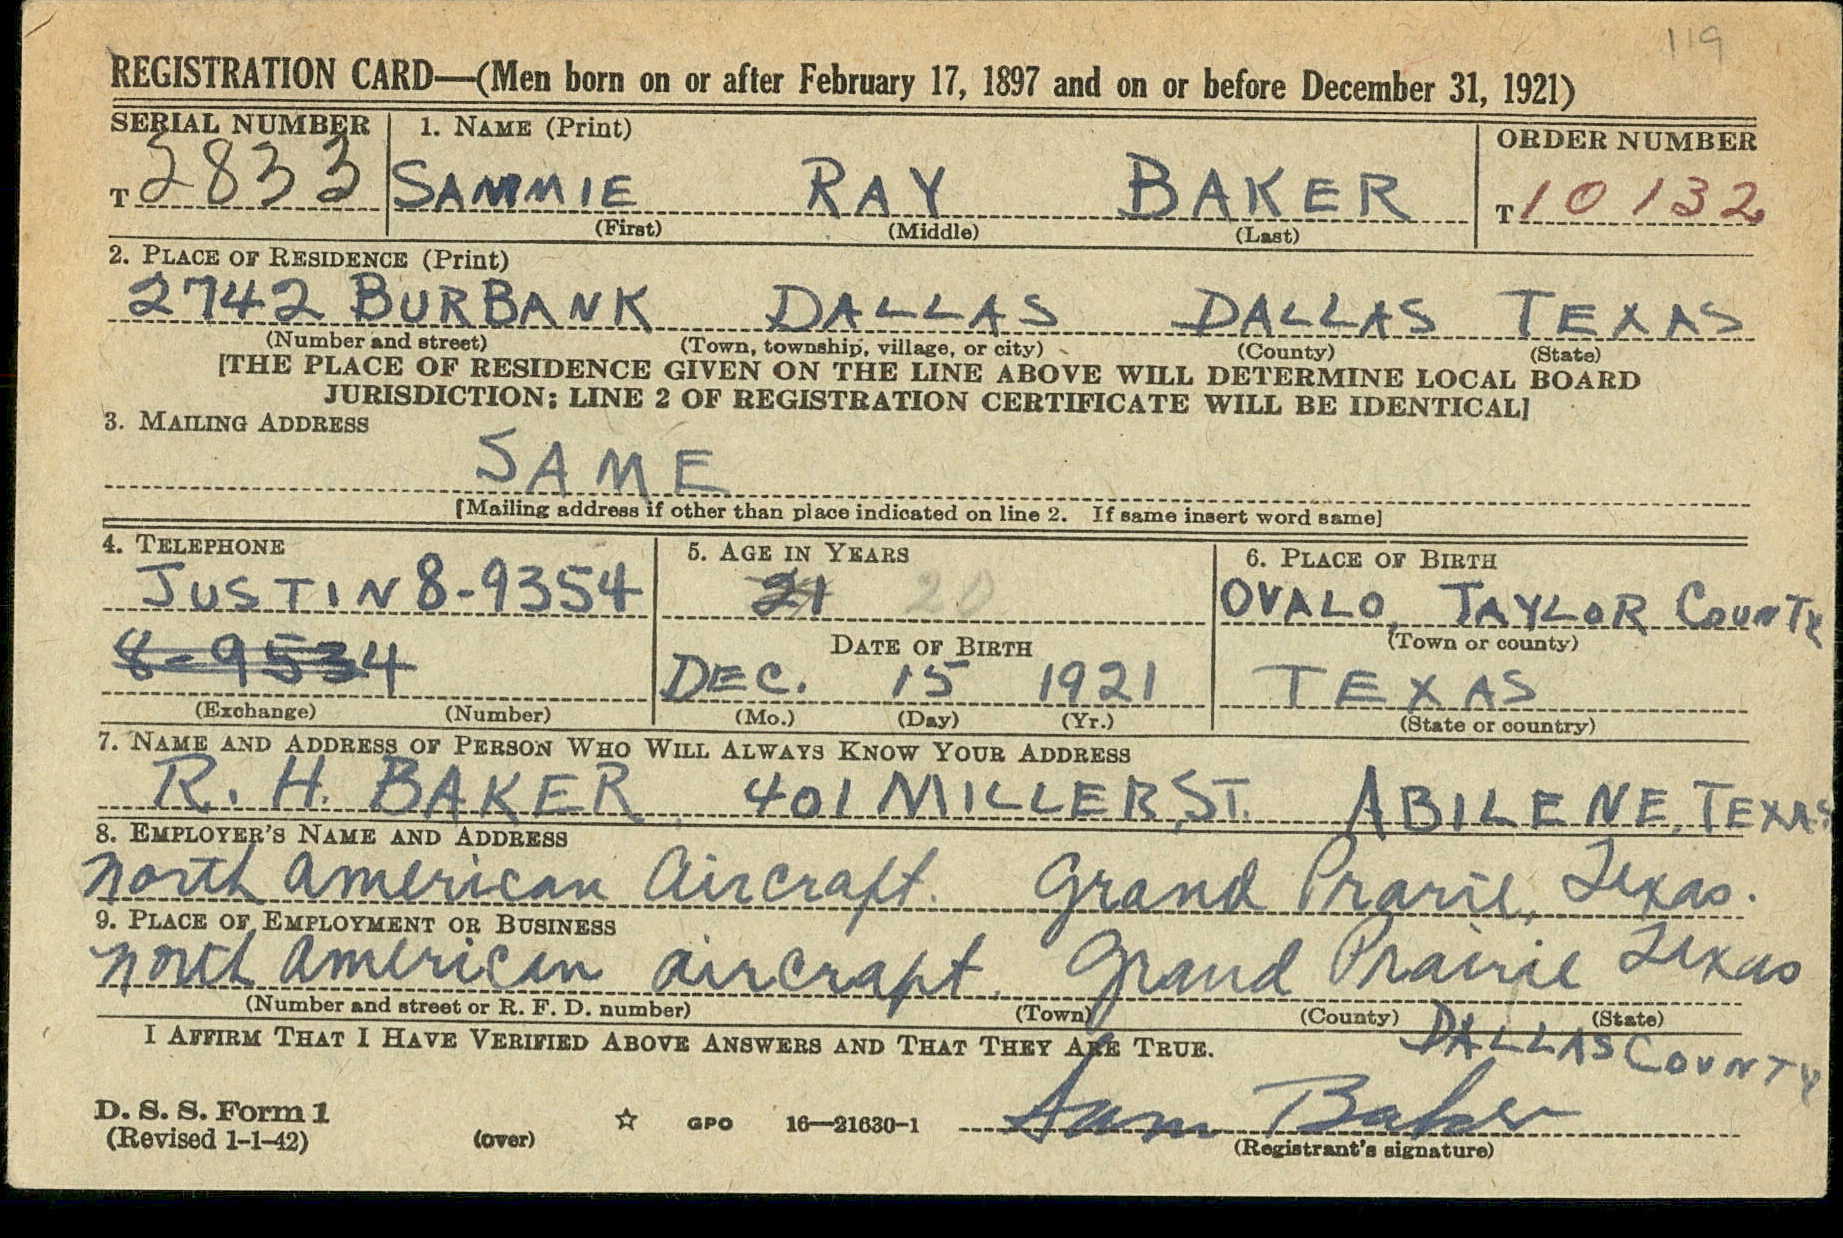 119
REGISTRATION CARD—(Men born on or after February 17, 1897 and on or before December 31, 1921)
SERIAL NUMBER 1. NAME (Print) ORDER NUMBER
T 2833 SAMMIE RAY BAKER T 10132
(First) (Middle) (Last)
2. PLACE OF RESIDENCE (Print)
2742 BURBANK DALLAS DALLAS TEXAS
(Number and street) (Town, township, village, or city) (County) (State)
[THE PLACE OF RESIDENCE GIVEN ON THE LINE ABOVE WILL DETERMINE LOCAL BOARD
JURISDICTION; LINE 2 OF REGISTRATION CERTIFICATE WILL BE IDENTICAL]
3. MAILING ADDRESS
SAME
[Mailing address if other than place indicated on line 2. If same insert word same]
4. TELEPHONE 5. AGE IN YEARS 6. PLACE OF BIRTH
JUSTIN 8-9354 21 20 OVALO, TAYLOR COUNTY
DATE OF BIRTH (Town or county)
8-9534 DEC. 15 1921 TEXAS
(Exchange) (Number) (Mo.) (Day) (Yr.) (State or country)
7. NAME AND ADDRESS OF PERSON WHO WILL ALWAYS KNOW YOUR ADDRESS
R. H. BAKER, 401 MILLER, ST. ABILENE, TEXAS
8. EMPLOYER'S NAME AND ADDRESS
North American Aircraft. Grand Prarie, Texas.
9. PLACE OF EMPLOYMENT OR BUSINESS
North American aircrapt. Grand Prairie Texas
(Number and street or R. F. D. number) (Town) (County) (State)
DALLAS COUNTY
I AFFIRM THAT I HAVE VERIFIED ABOVE ANSWERS AND THAT THEY ARE TRUE.
D. S. S. Form 1
(Revised 1-1-42) (over) ☆ GPO 16—21630-1 Sam Baker
(Registrant's signature)